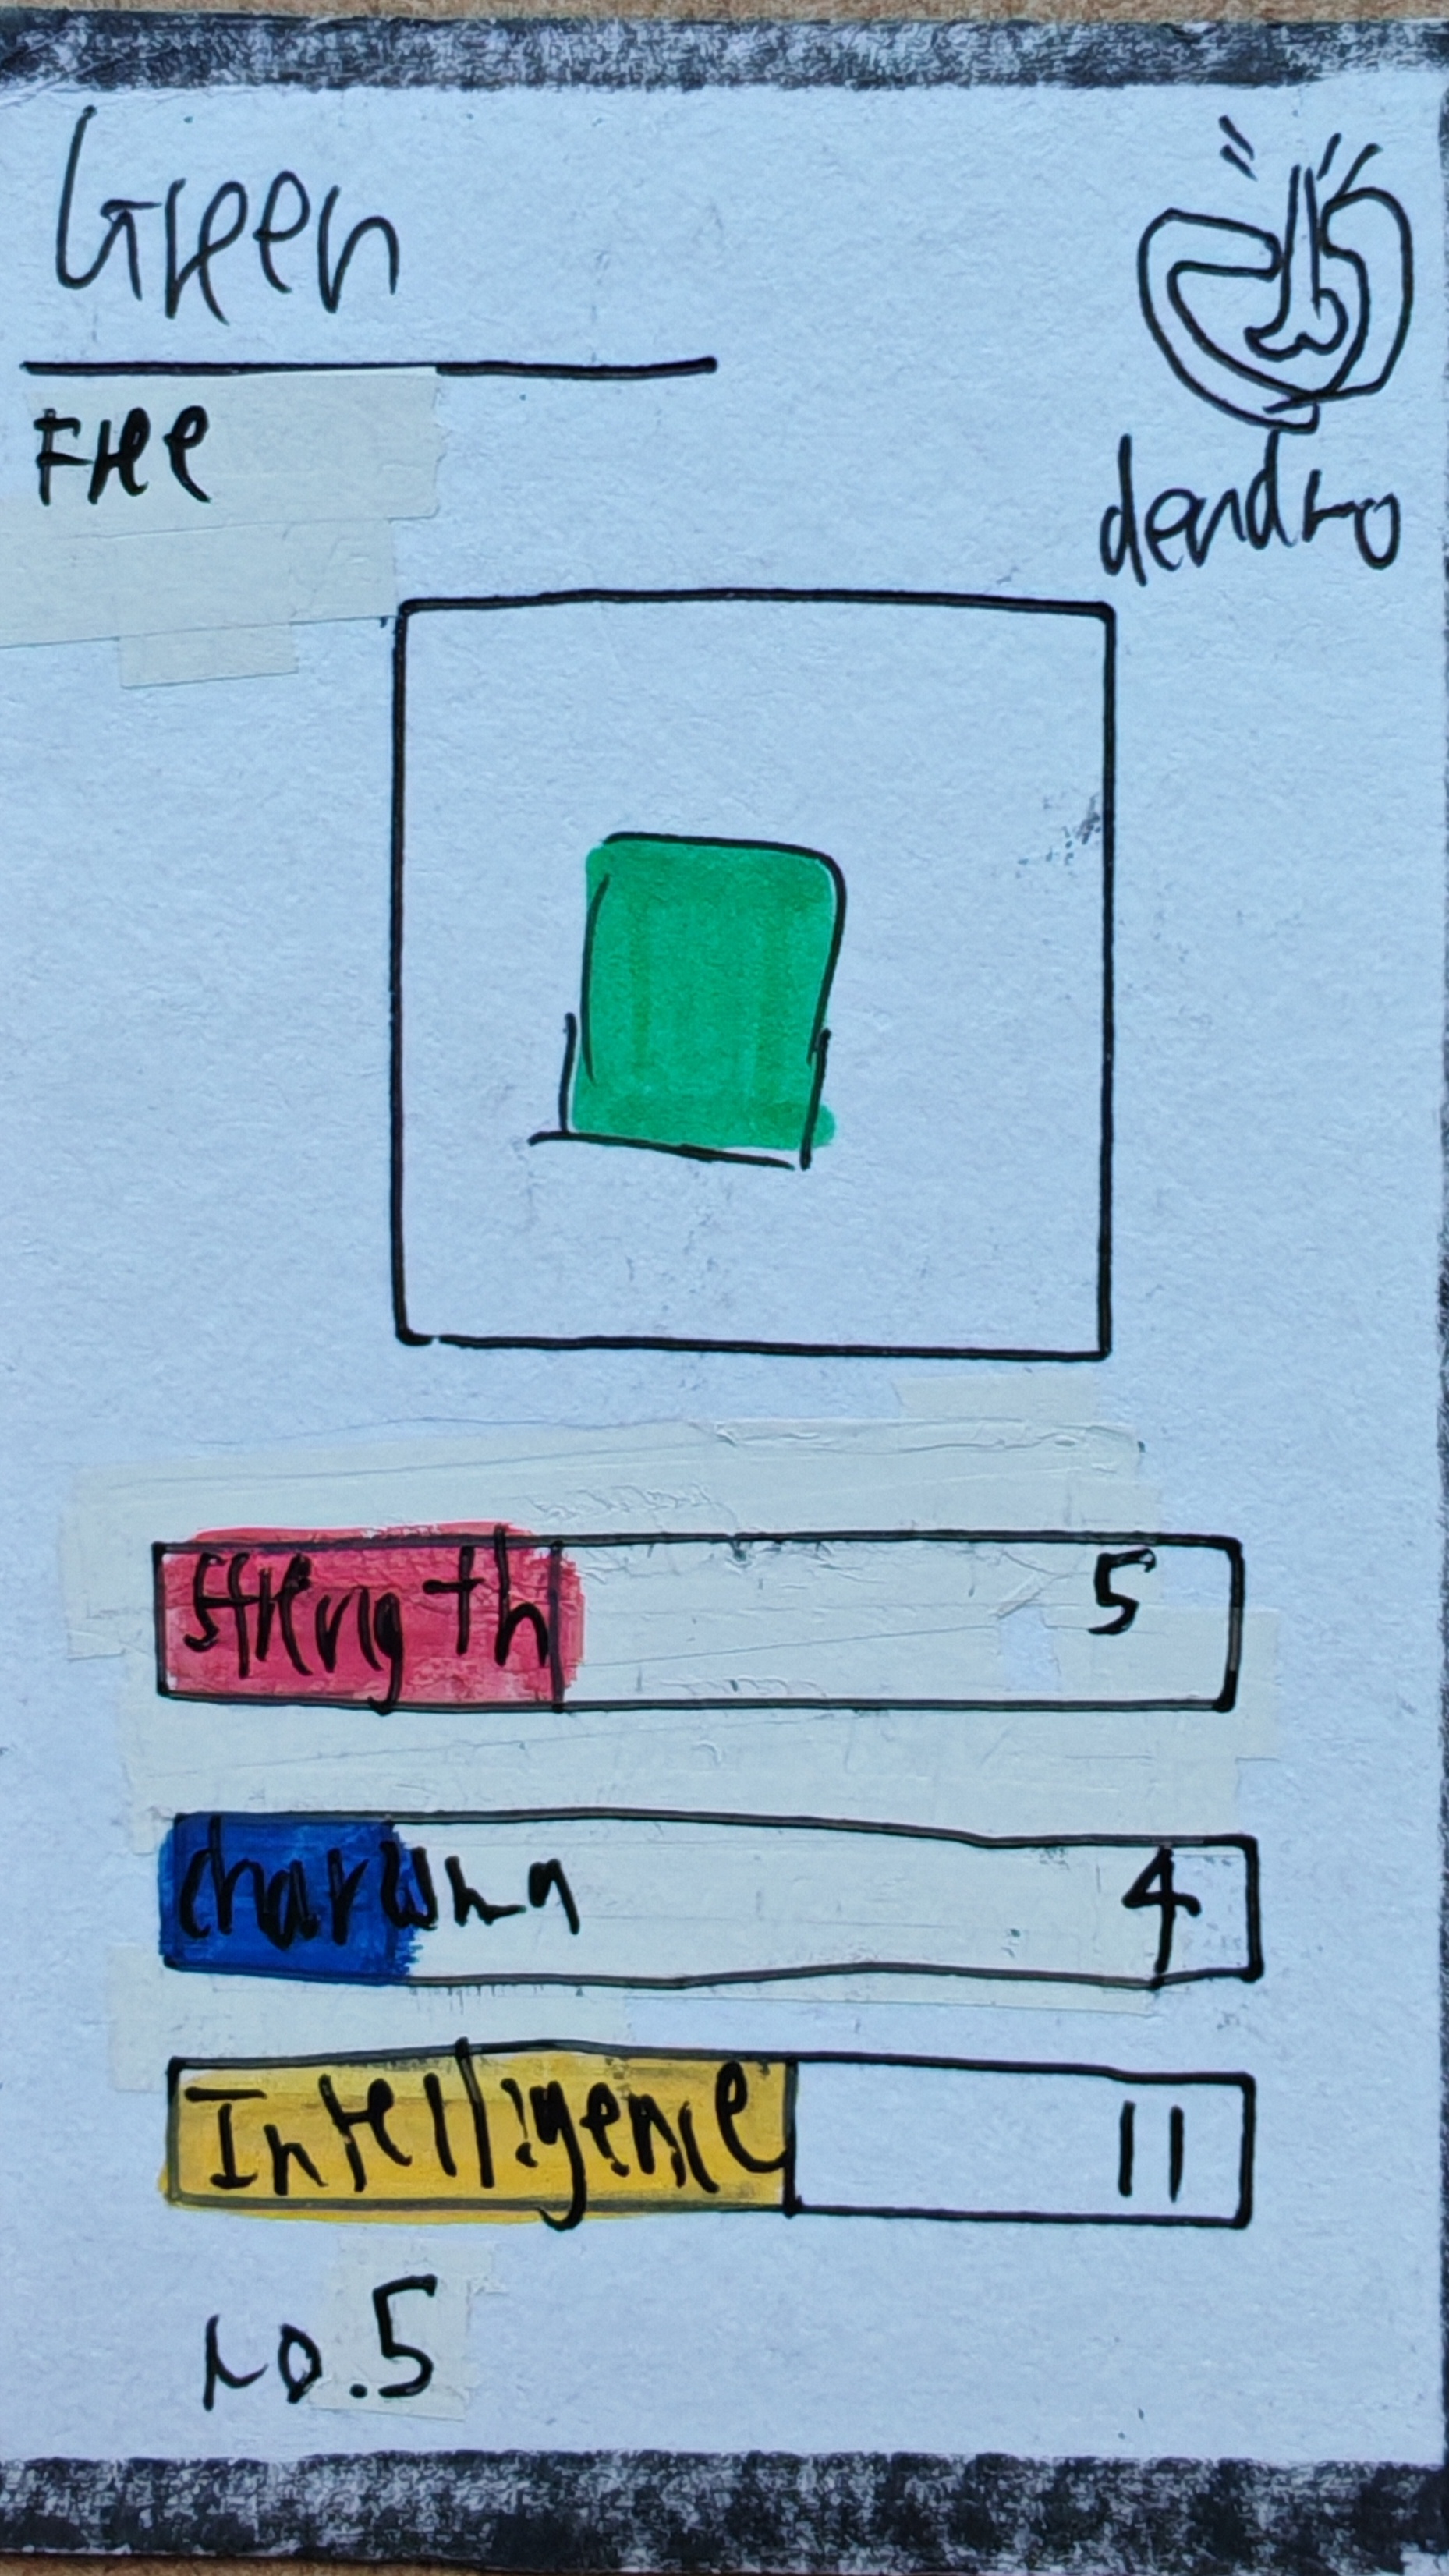 Green
Free
dendro
strength 5
4
Intelligence 11
No.5